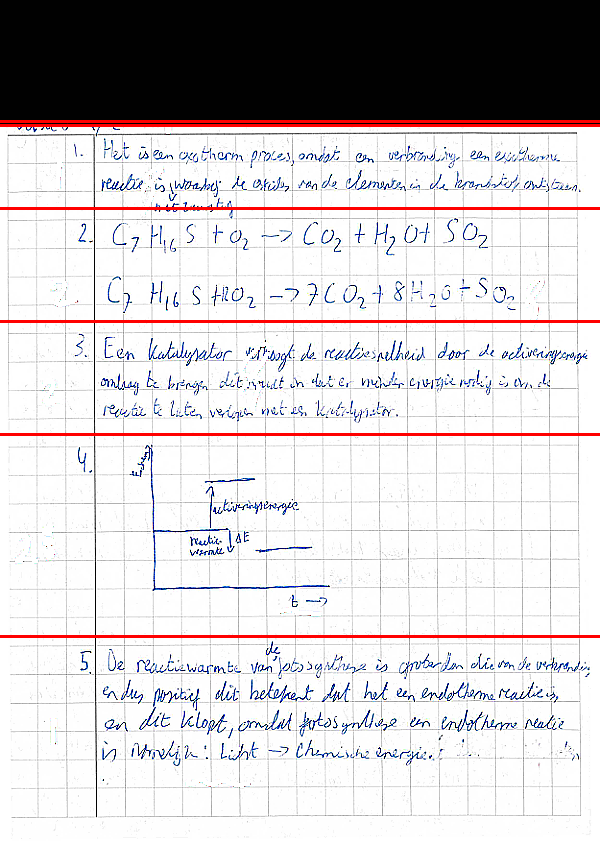 1. Het is een exotherm proces, omdat een verbranding een exotherme
reactie is, waarbij de oxides van de elementen in de brandstof ontstaan.
2. C7 H16 S + O2 -> CO2 + H2O + SO2
C7 H16 S + 12O2 -> 7CO2 + 8H2O + SO2
3. Een Katalysator verhoogt de reactiesnelheid door de activeringsenergie
omlaag te brengen dit houdt in dat er minder energie nodig is om de
reactie te laten verlopen met een Katalysator.
4.
activeringsenergie
reactie- ΔE
warmte
t ->
5. De reactiewarmte van de fotosynthese is groter dan die van de verbranding
en dus positief dit betekent dat het een endotherme reactie is,
en dit klopt, omdat fotosynthese een endotherme reactie
is namelijk: Licht -> Chemische energie.